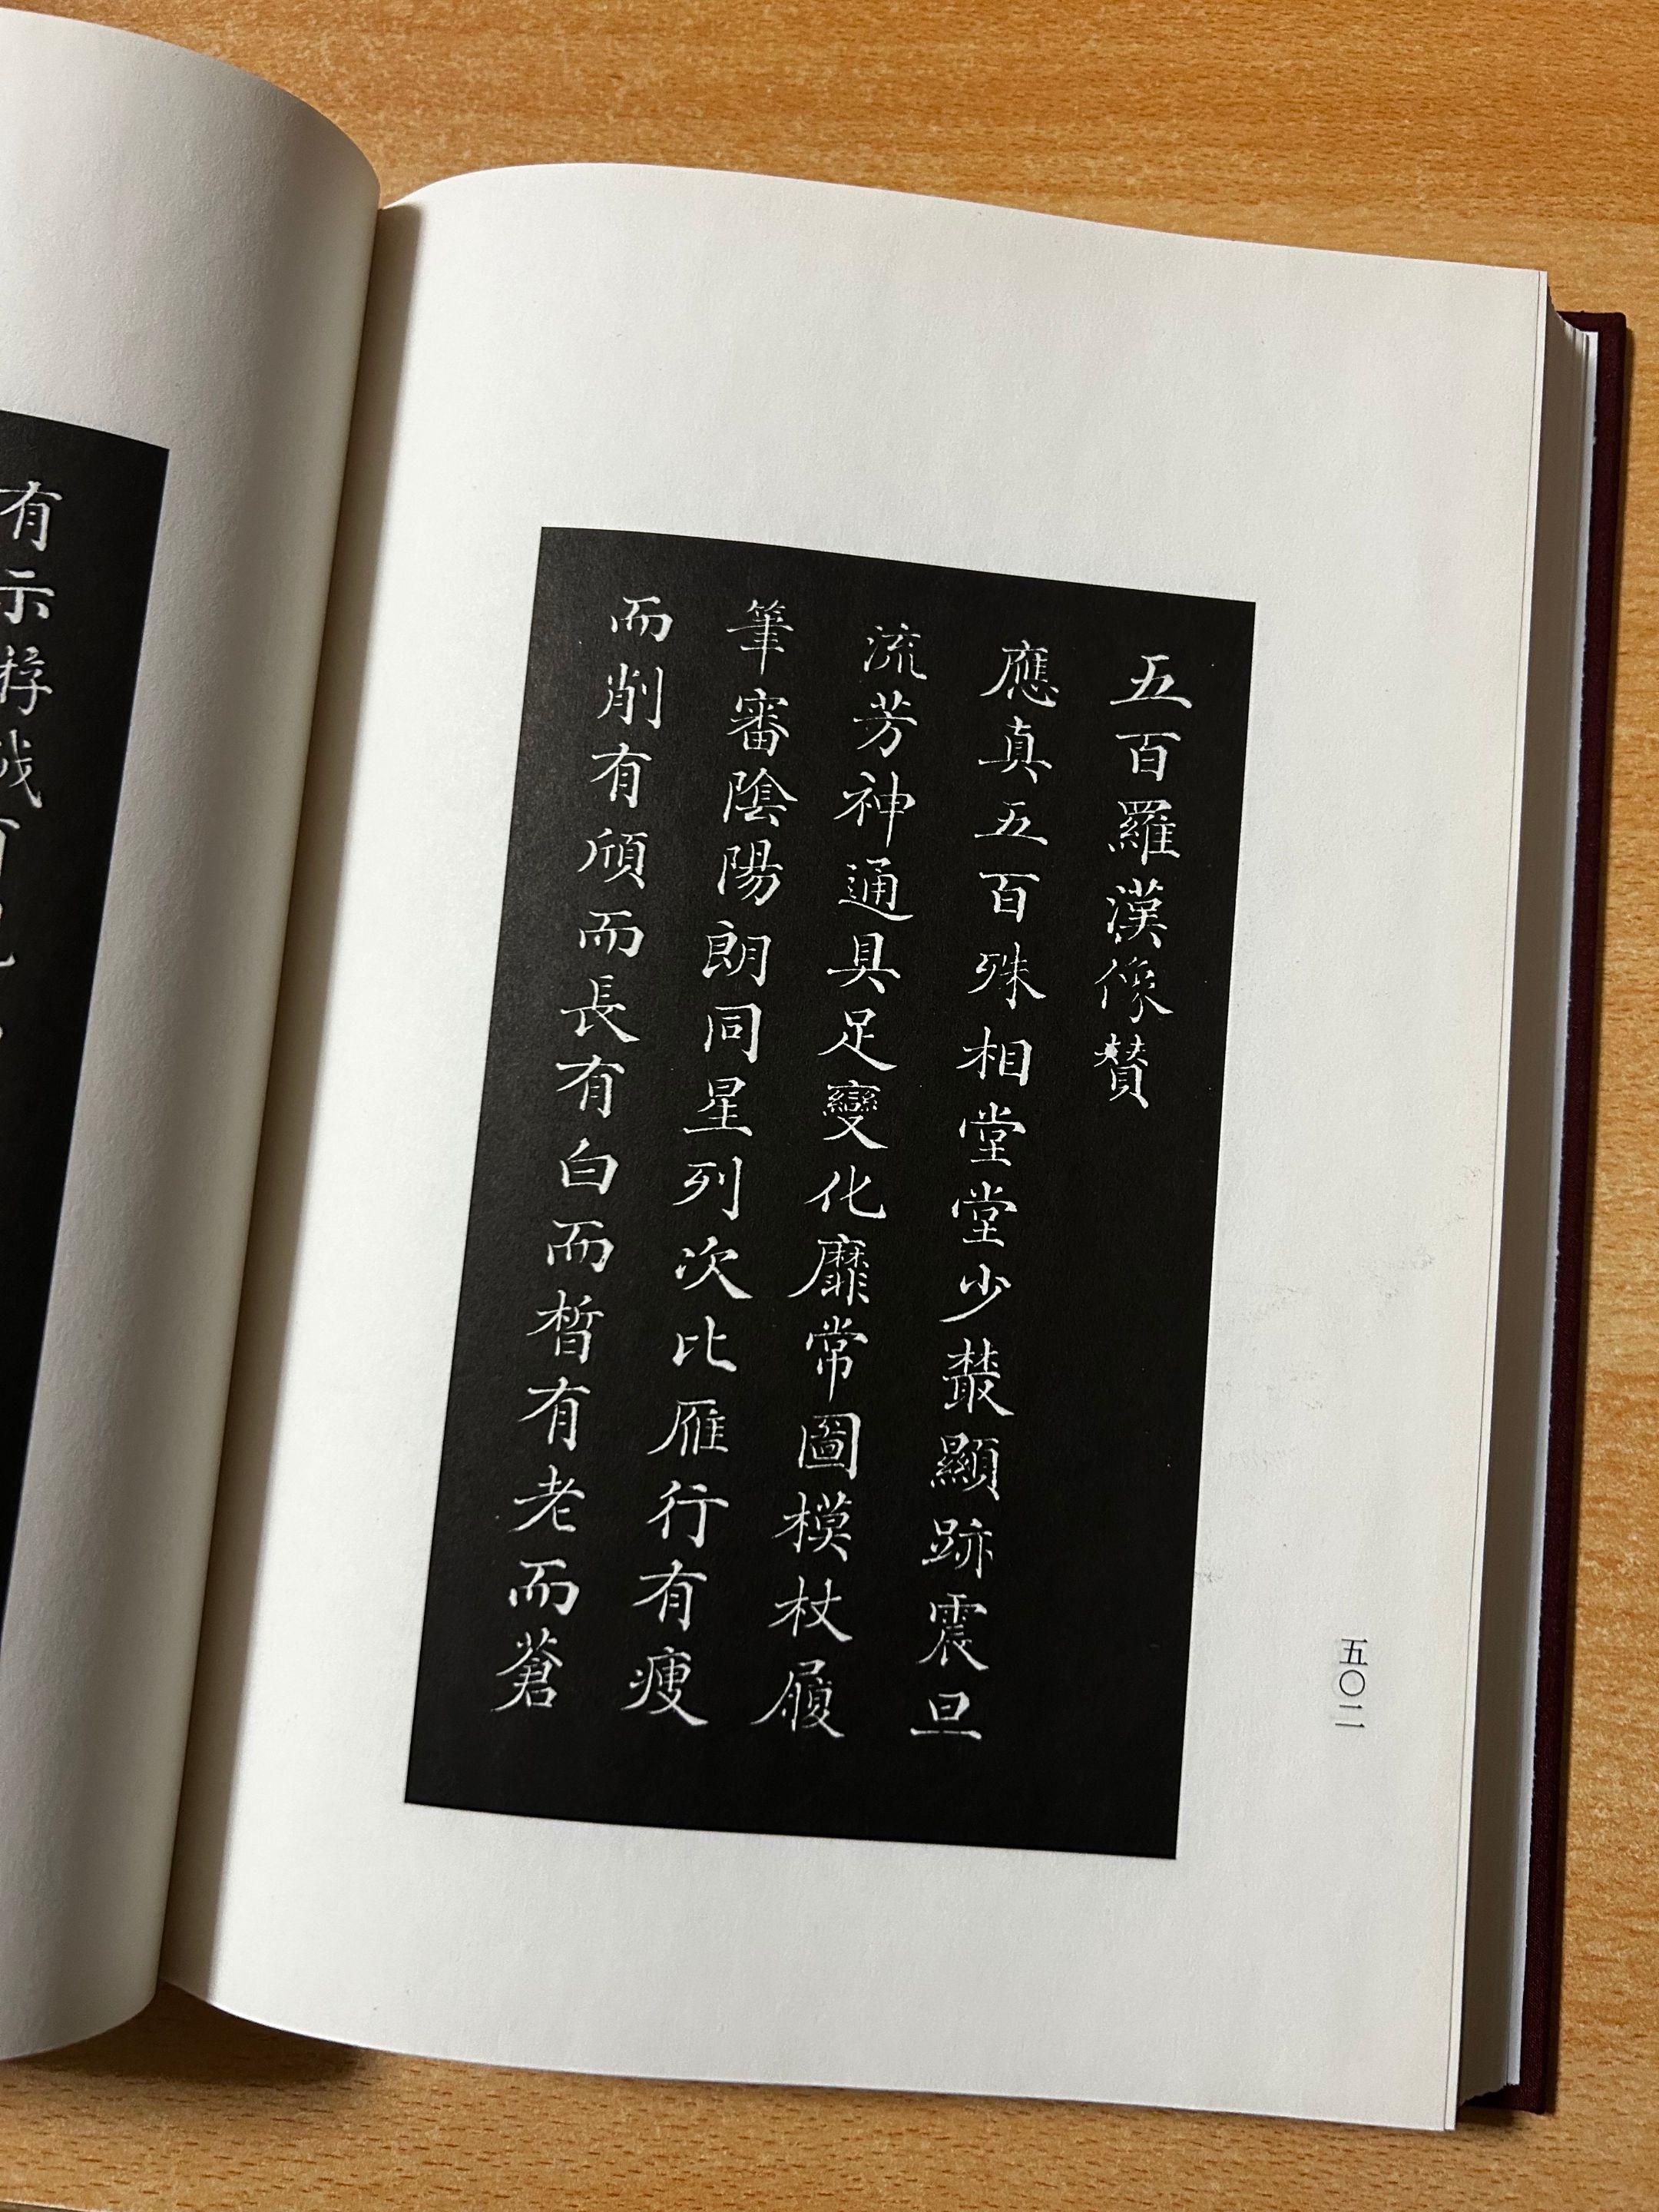 五百羅漢像贊
應真五百殊相堂堂少叢顯跡震旦
流芳神通具足變化靡常圖模杖履
筆審陰陽朗同星列次比雁行有瘦
而削有頎而長有白而皙有老而蒼
五〇二
有示游戲有